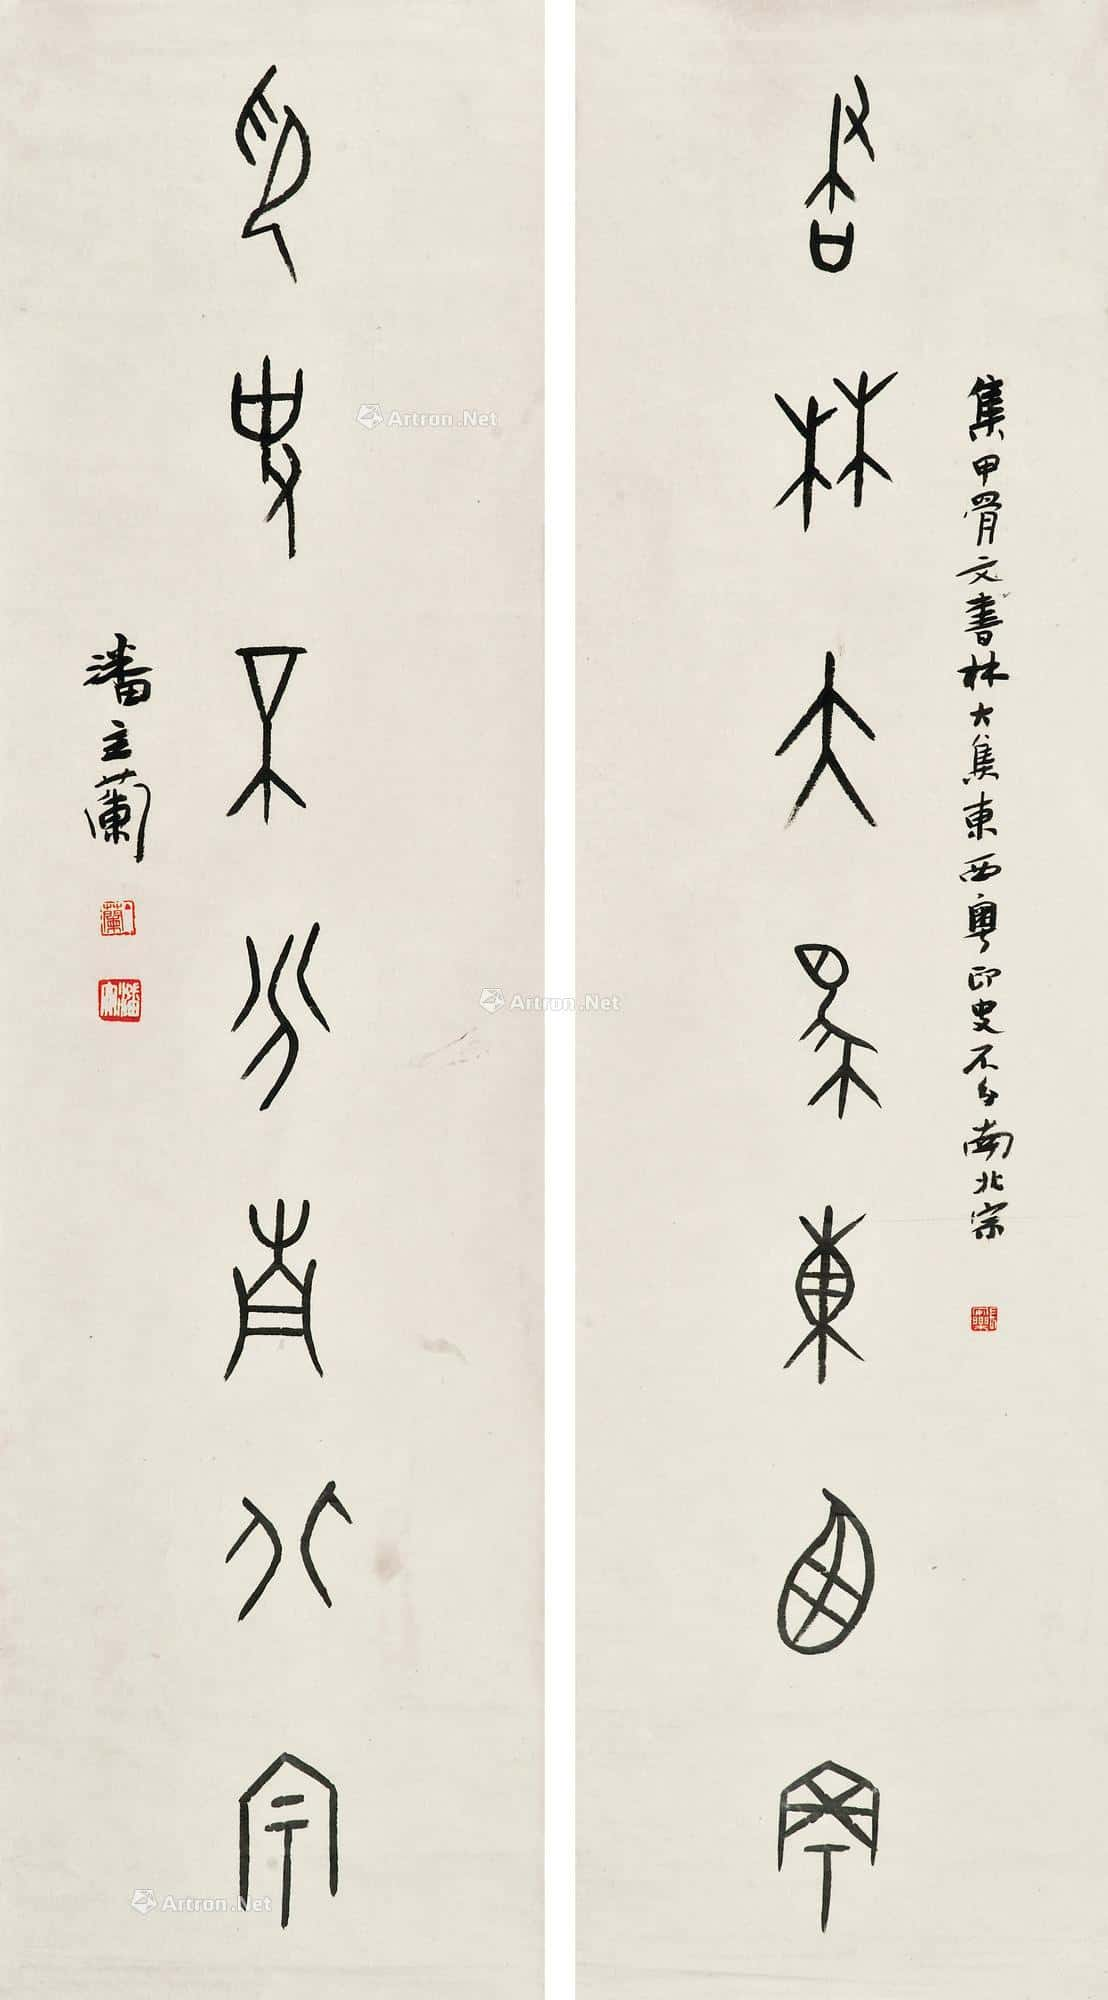 書林大集東西粤
集甲骨文書林大集東西粤印史不分南北宗
印史不分南北宗
潘主蘭
Artron.Net
Artron.Net
Artron.Net